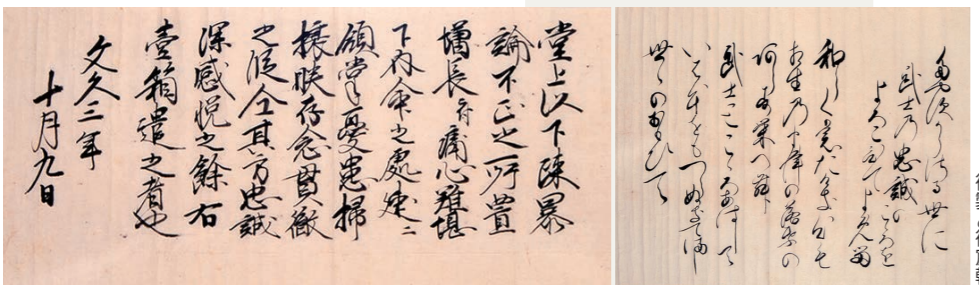 堂上以下疎暴
論不正之所置
増長付痛心難堪
下内命之處速ニ
領掌憂患掃
攘朕存念貫徹
之段全其方忠誠
深感悦之餘右
壹箱遣之者也
文久三年
十月九日
たやすからさる世に
武士の忠誠の心を
よろこひてよめる
和らくも
相生の
あらす栄へ
武士とこころあはして
いはほをもつらぬきてまし
世々のおもひて